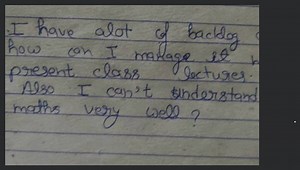 I have alot of backlog
how can I manage it
present class lectures.
Also I can't understand
maths very well?